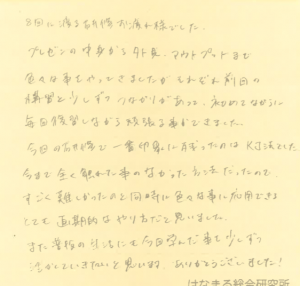 8回に渡る研修お疲れ様でした。
プレゼンの中身から外見、アウトプットまで
色々な事をやってきましたがそれぞれ前回の
講習と少しずつつながりがあって、初めてながらに
毎回復習しながら頑張る事ができました。
今回の研修で一番印象に残ったのはKJ法でした
今まで全く触れた事のなかった方法だったので、
すごく難しかったのと同時に色々な事に応用できる
とても画期的なやり方だと思いました。
また普段の生活にも今回学んだ事を少しずつ
活かしていきたいと思います。ありがとうございました!
はなまる総合研究所